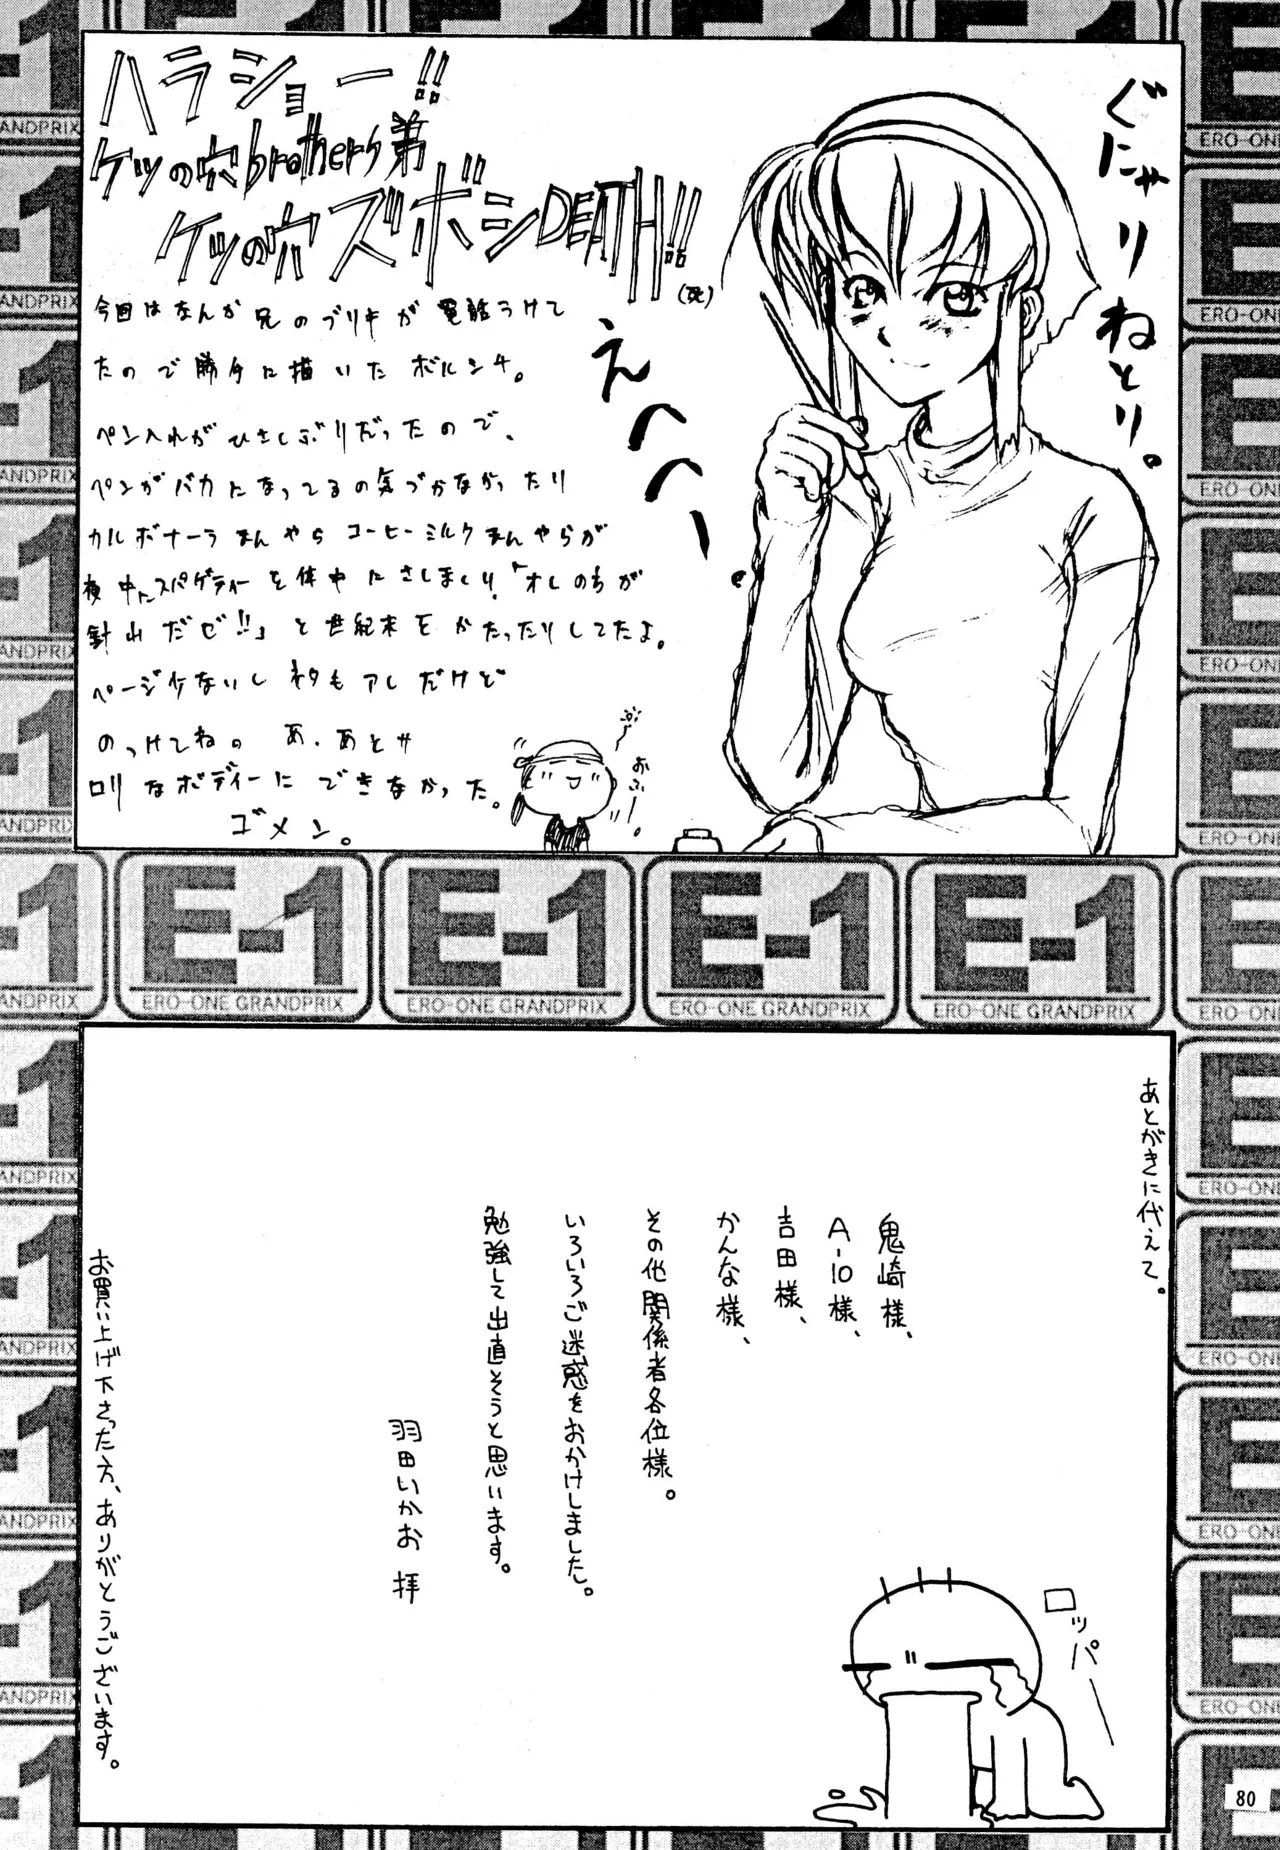 ハラショー!!
ケツの穴brothers弟
ケツの穴ズボシDEATH!!
(死)
今回はなんか兄のブリキが電話うけて
たので勝手に描いたボルシチ。
ペン入れがひさしぶりだったので、
ペンがバカになってるの気づかなかったり
カルボナーラまんやらコーヒーミルクまんやらが
夜中にスパゲティーを体中にさしまくり「オレのちが
針山だゼ!!」と世紀末をかたったりしてたよ。
ページ少ないしネタもアレだけど
のっけてね。あ、あとサ
ロリなボディーにできなかった。
ゴメン。
ぐにゃりねとり。
えへへー
ぷぃーん
おふー。
E-1
ERO-ONE GRANDPRIX
E-1
ERO-ONE GRANDPRIX
E-1
ERO-ONE GRANDPRIX
E-1
ERO-ONE GRANDPRIX
あとがきに代えて。
鬼崎様、
A-10様、
吉田様、
かんな様、
その他関係者各位様。
いろいろご迷惑をおかけしました。
勉強して出直そうと思います。
羽田いかお 拝
お買い上げ下さった方、ありがとうございます。
ロッパー
80